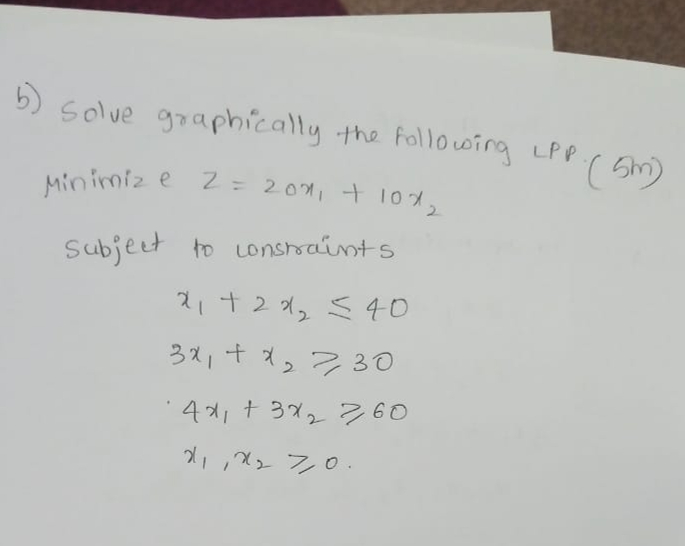 b) Solve graphically the following LPP. (5m)
Minimize Z = 20x₁ + 10x₂
Subject to constraints
x₁ + 2x₂ ≤ 40
3x₁ + x₂ ≥ 30
4x₁ + 3x₂ ≥ 60
x₁, x₂ ≥ 0.